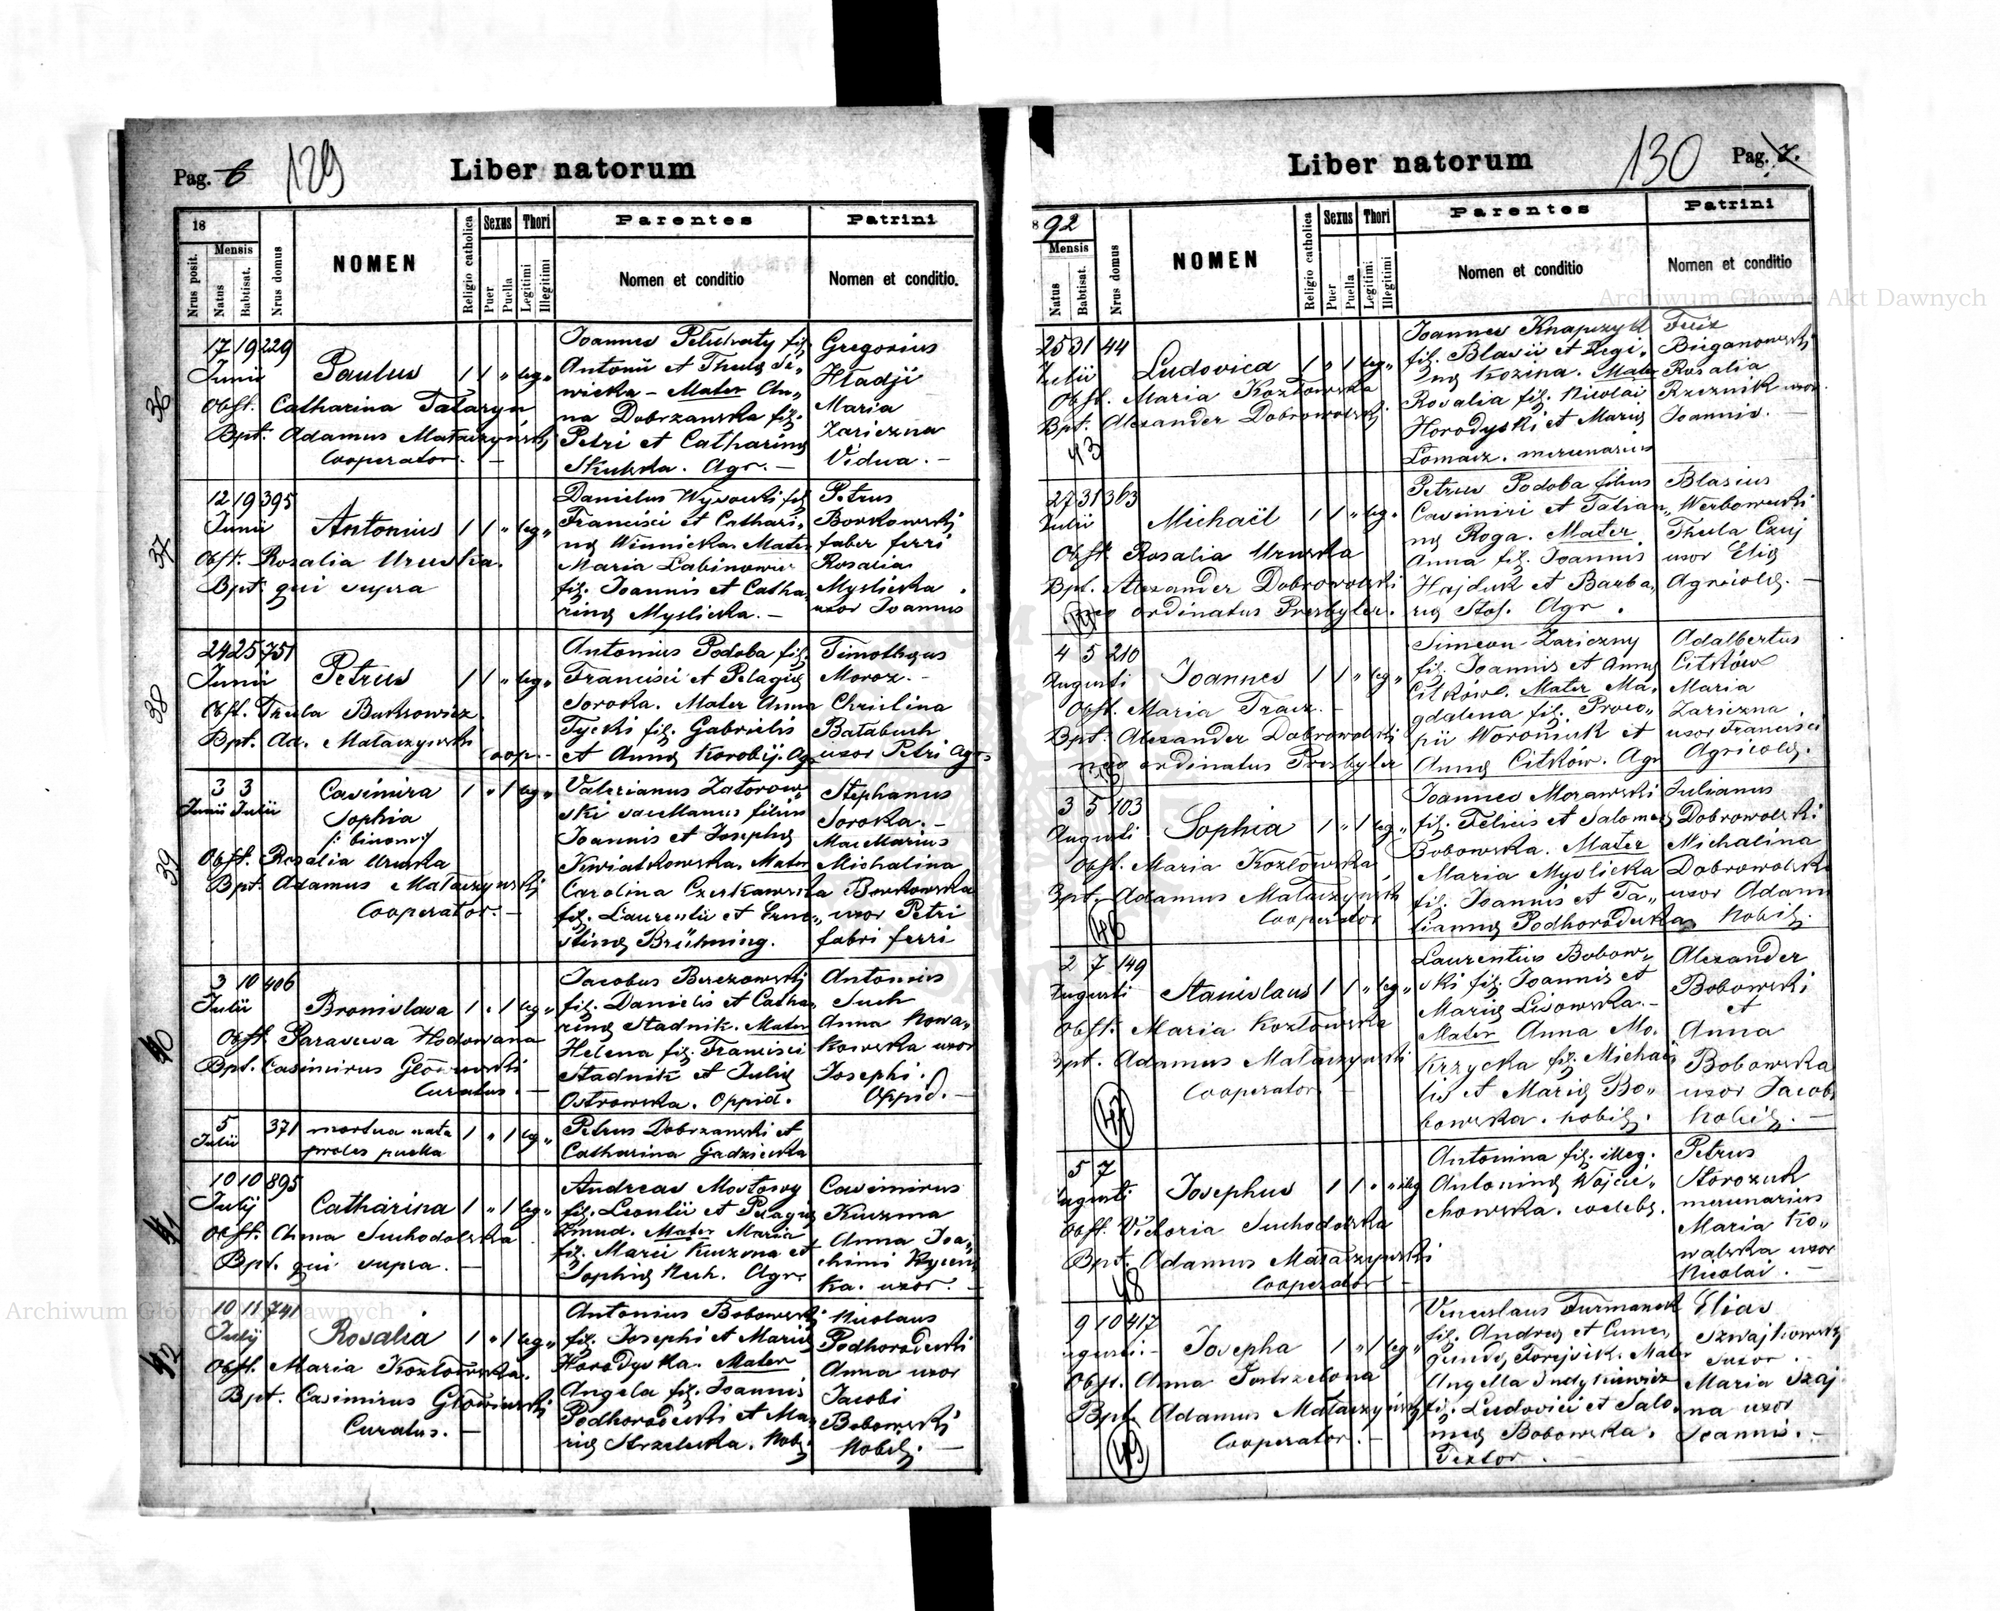 Pag. 6
129
Liber natorum
18
Nrus posit.
Mensis
Natus
Babtisat.
Nrus domus
NOMEN
Religio catholica
Sexus
Puer
Puella
Thori
Legitimi
Illegitimi
Parentes
Nomen et conditio
Patrini
Nomen et conditio.
36
17 19 229
Junii
Paulus 1 1 " leg "
Obst. Catharina Tataryn
Bpt. Adamus Mataczyński
Cooperator. —
Joannes Petuhvaty fil.
Antonii et Thecla
wicka - Mater An"
na Dobrzanska fil.
Petri et Catharina
Skulska. Agr. —
Gregorius
Hladji
Maria
Zariczna
Vidua. —
37
12 19 395
Junii
Antonius 1 1 " leg "
Obst. Rosalia Uruska.
Bpt. qui supra
Danielus Wysocki fil.
Francisci et Cathari"
na Winnicka. Mater
Maria Labinowicz
fil. Joannis et Catha
rina Myslicka. —
Petrus
Borkowski
faber ferri
Rosaria
Myslicka
uxor Joannis
38
24 25 751
Junii
Petrus 1 1 " leg "
Obst. Thecla Bakrowicz
Bpt. Ad. Mataczynski
Coop. —
Antonius Podoba fil.
Francisci et Pelagia
Soroka. Mater Anna
Tycki fil. Gabrielis
et Anna Korobij. Agr
Timotheus
Moroz. —
Christina
Batabuch
uxor Petri Agr.
39
3 3
Junii Julii
Casimira 1 " 1 leg "
Sophia
/: binom :/
Obst. Rosalia Uruska
Bpt. Adamus Mataczynski
Cooperator. —
Valerianus Zatorow"
ski saellanus filius
Joannis et Josepha
Kwiatkowska. Mater
Carolina Czerkawska
fil. Laurentii et Erne"
stina Brühning.
Stephanus
Soroka. —
Marius
Michalina
Borkowska
uxor Petri
fabri ferri
40
3 10 406
Julii
Bronislava 1 " 1 leg "
Obst. Parasceva Hodowana
Bpt. Casimirus Głowinski
Curatus. —
Jacobus Berezowski
fil. Danielis et Catha
rina Stadnik. Mater
Helena fil. Francisci
Stadnik et Julia
Ostrowska. Oppid.
Antonius
Such
Anna Nowa"
kowska uxor
Josephi.
Oppid. —
5 371
Julii
mortua nata 1 " 1 leg "
proles puella
Petrus Dobrzanski et
Catharina Gadzicka
41
10 10 895
Julij
Catharina 1 " 1 leg "
Obst. Anna Suchodolska
Bpt. qui supra. —
Andreas Mostowy
fil. Leontii et Pelagia
Kmud. Mater Maria
fil. Marii Kuczma et
Sophia Huh. Agr.
Casimirus
Kuczma
Anna Joa"
chimi
ka. uxor. —
42
10 11 741
Julij
Rosalia 1 " 1 leg "
Obst. Maria Kozlowska.
Bpt. Casimirus Głowinski
Curatus. —
Antonius Bobowski
fil. Josephi et Maria
Horodyska. Mater
Angela fil. Joannis
Podhorodecki et Ma
ria Strzelecka. Nob.
Nicolaus
Podhorodecki
Anna uxor
Jacobi
Bobowski
Nobil. —
Liber natorum
130
Pag. 7.
8 92
Mensis
Natus
Babtisat.
Nrus domus
NOMEN
Religio catholica
Sexus
Puer
Puella
Thori
Legitimi
Illegitimi
Parentes
Nomen et conditio
Patrini
Nomen et conditio
25 31 44
Julii
Ludovica 1 " 1 leg "
Obst. Maria Kozlowska
Bpt. Alexander Dobrowolski
43
Joannes Knapczyk
fil. Blasii et Regi"
na Kozina. Mater
Rosalia fil. Nicolai
Horodyski et Maria
Lomacz. mercenarius
Felix
Bieganowski
Rosalia
Rzeznik uxor
Joannis. —
27 31 363
Julii
Michaël 1 1 " leg "
Obst. Rosalia Uruska
Bpt. Alexander Dobrowolski
neo ordinatus Presbyter.
44
Petrus Podoba filius
Casimiri et Tatian"
na Roga. Mater
Anna fil. Joannis
Hajduk et Barba"
ra Stof. Agr.
Blasius
Werbowecki
Thecla Czuj
uxor Elia
Agricola. —
4 5 210
Augusti
Joannes 1 1 " leg "
Obst. Maria Tracz. —
Bpt. Alexander Dobrowolski
neo ordinatus Presbyter
45
Simeon Zariczny
fil. Joannis et Anna
Citków. Mater Ma"
gdalena fil. Proco"
pii Woroniuk et
Anna Citków. Agr
Adalbertus
Citków
Maria
Zariczna
uxor Francisci
Agricola.
3 5 103
Augusti
Sophia 1 " 1 leg "
Obst. Maria Kozlowska
Bpt. Adamus Mataczynski
Cooperator
46
Joannes Morawski
fil. Felicis et Salomea
Bobowska. Mater
Maria Myslicka
fil. Joannis et Ta"
tianna Podhorodecka
Julianus
Dobrowolski
Michalina
Dobrowolska
uxor Adami
Nobil.
2 7 149
Augusti
Stanislaus 1 1 " leg "
Obst. Maria Kozlowska
Bpt. Adamus Mataczynski
Cooperator. —
47
Laurentius Bobow"
ski fil. Joannis et
Maria Lisowska. —
Mater Anna Mo"
krzycka fil. Michae
lis et Maria Bo"
bowska. Nobil.
Alexander
Bobowski
et
Anna
Bobowska
uxor Jacobi
Nobil. —
5 7
Augusti
Josephus 1 1 " " illeg
Obst. Victoria Suchodolska
Bpt. Adamus Mataczynski
Cooperator —
48
Antonina fil. illeg.
Antonina Wojcie"
chowska. coelebs.
Petrus
Storozuk
mercenarius
Maria Ko"
walska uxor
Nicolai. —
9 10 417
Augusti
Josepha 1 " 1 leg "
Obst. Anna Postrzelona
Bpt. Adamus Mataczynski
Cooperator. —
49
Venceslaus Furmanek
fil. Andrea et Cune"
gunda Forejsik. Mater
Angella Indykiewicz
fil. Ludovici et Salo"
mea Bobowska.
Textor. —
Elias
Szwajkowski
sutor. —
Maria Szaj
na uxor
Joannis. —
Archiwum Główne Akt Dawnych
Archiwum Główne Akt Dawnych